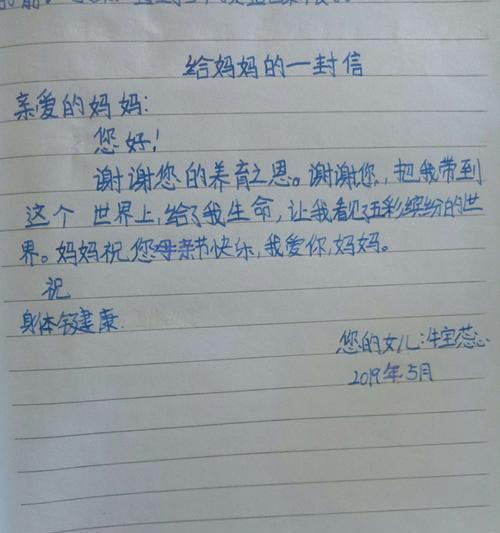 给妈妈的一封信
亲爱的妈妈:
您好!
谢谢您的养育之恩。谢谢您,把我带到
这个 世界上,给了我生命,让我看见了五彩缤纷的世
界。妈妈祝您母亲节快乐,我爱你,妈妈。
祝
身体健康.
您的女儿:牛宝蕊
2019年5月